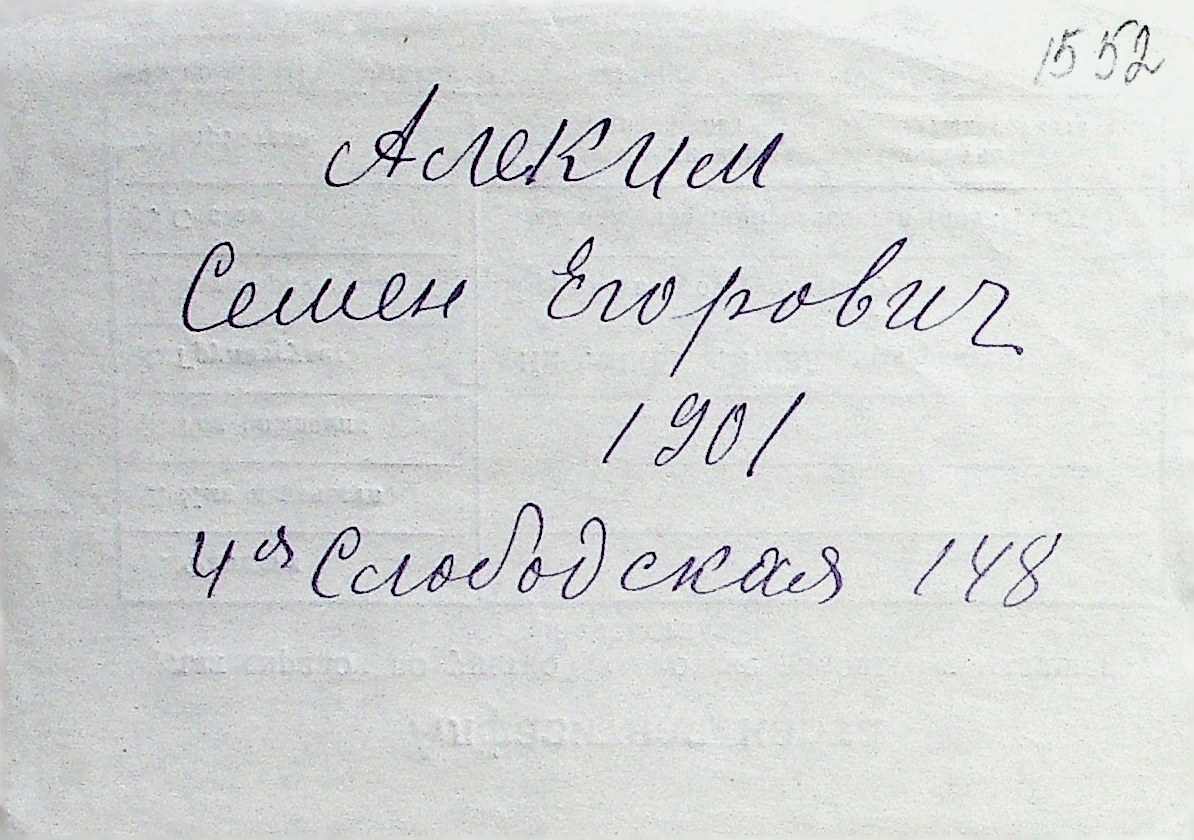 1552
Алеким
Семен Егорович
1901
4ая Слободская 148